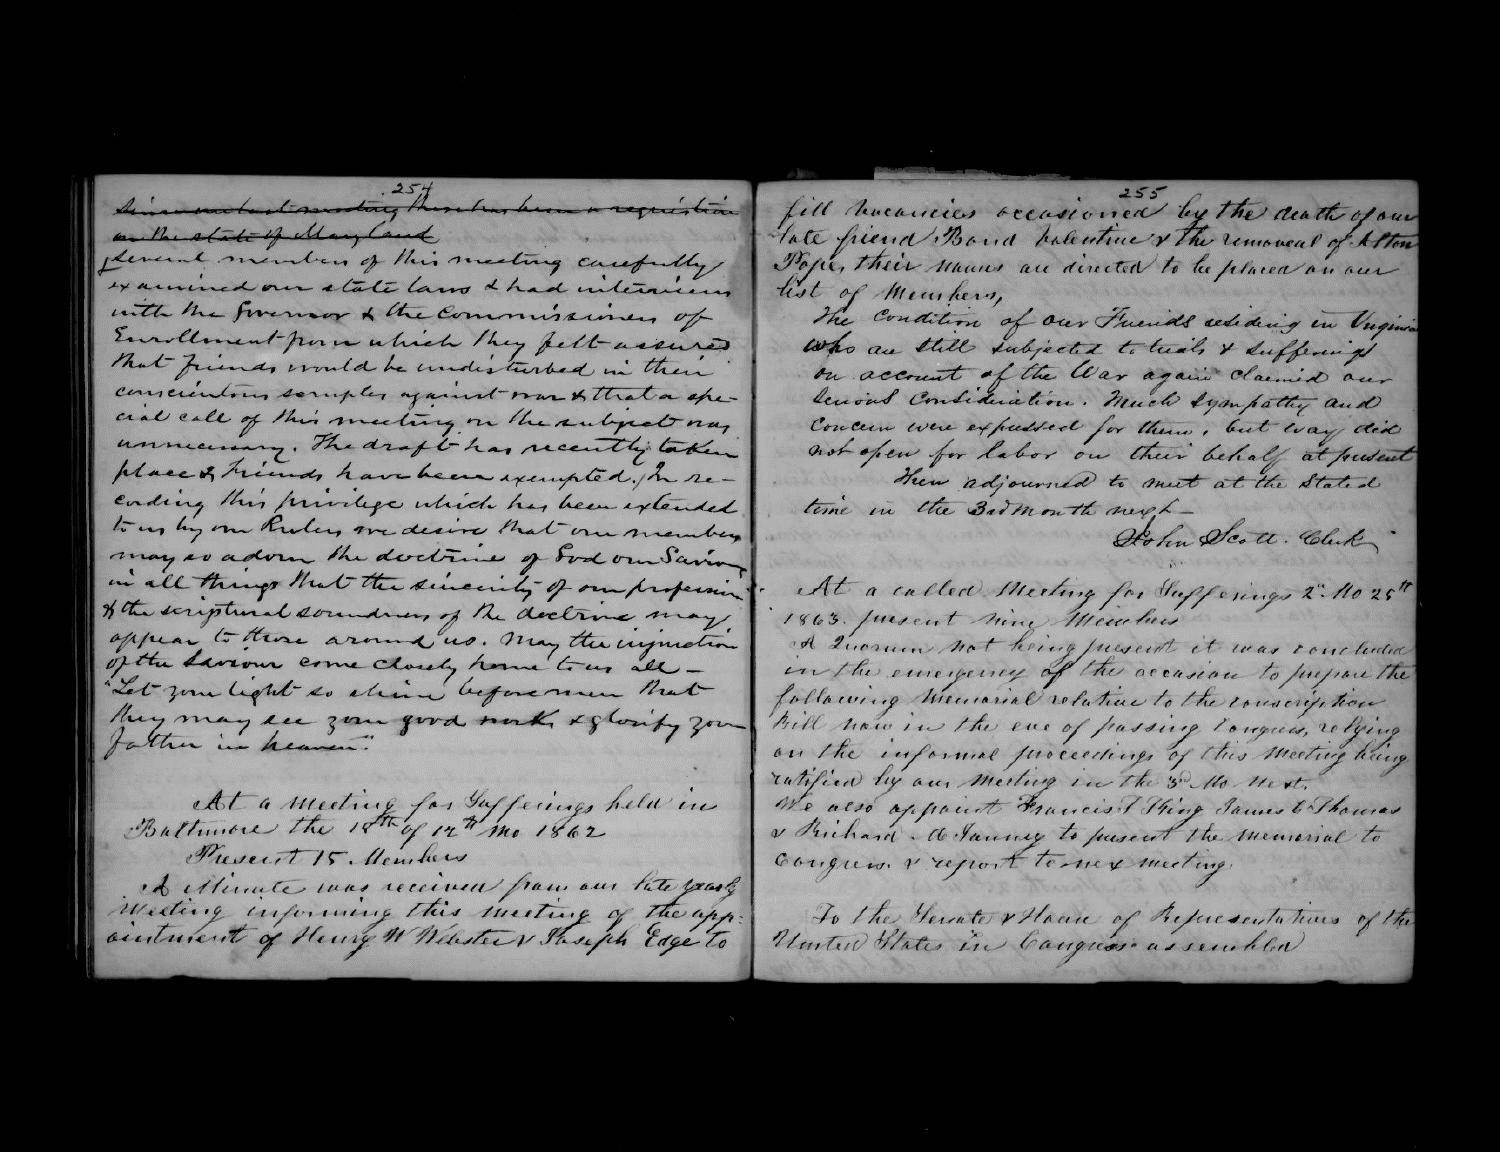 254
Since our last meeting there has been a requisition
on the state of Maryland
Several members of this meeting carefully
examined our state laws & had interviews
with the Governor & the Commissioners of
Enrollment from which they felt assured
that friends would be undisturbed in their
conscientious scruples against war & that a spe-
cial call of this meeting on the subject was
unnecessary. The draft has recently taken
place & Friends have been exempted. In re-
cording this privilege which has been extended
to us by our Rulers we desire that our members
may so adorn the doctrine of God our Saviour
in all things that the sincerity of our profession
& the scriptural soundness of the doctrine may
appear to those around us. May the injunction
of the Saviour come closely home to us all –
"Let your light so shine before men that
they may see your good works & glorify your
father in heaven."
At a meeting for Sufferings held in
Baltimore the 18th of 12th Mo 1862
Present 15 Members
A Minute was received from our late yearly
Meeting informing this meeting of the app-
ointment of Henry W Webster & Joseph Edge to
255
fill vacancies occasioned by the death of our
late friend Bond Valentine & the removal of Alton
Pope, their names are directed to be placed on our
list of Members,
The condition of our Friends residing in Virginia
who are still subjected to trials & sufferings
on account of the War again claimed our
serious consideration. Much sympathy and
concern were expressed for them, but way did
not open for labor on their behalf at present
Then adjourned to meet at the stated
time in the 3rd month next –
John Scott. Clerk
At a called Meeting for Sufferings 2" Mo 25th
1863. present nine Members
A Quorum not being present it was concluded
in the emergency of the occasion to prepare the
following Memorial relative to the conscription
Bill now in the eve of passing Congress, relying
on the informal proceedings of this Meeting being
ratified by our Meeting in the 3rd Mo next.
We also appoint Francis T King James C Thomas
& Richard M Janney to present the memorial to
Congress. & report to next meeting.
To the Senate & House of Representatives of the
United States in Congress assembled